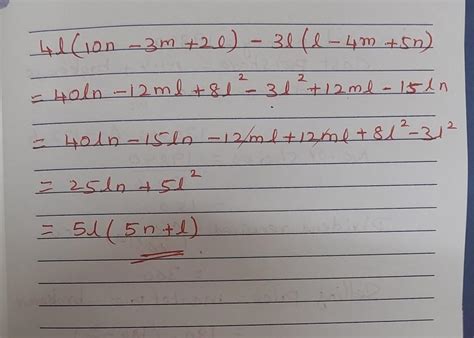 4l(10n - 3m + 2l) - 3l(l - 4m + 5n)
= 40ln - 12ml + 8l² - 3l² + 12ml - 15ln
= 40ln - 15ln - 12ml + 12ml + 8l² - 3l²
= 25ln + 5l²
= 5l(5n + l)